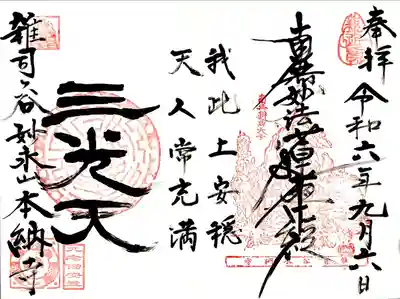 奉拝 令和六年九月六日
南無妙法蓮華経
我此土安穏
天人常充満
三光天
雑司ヶ谷妙永山本納寺